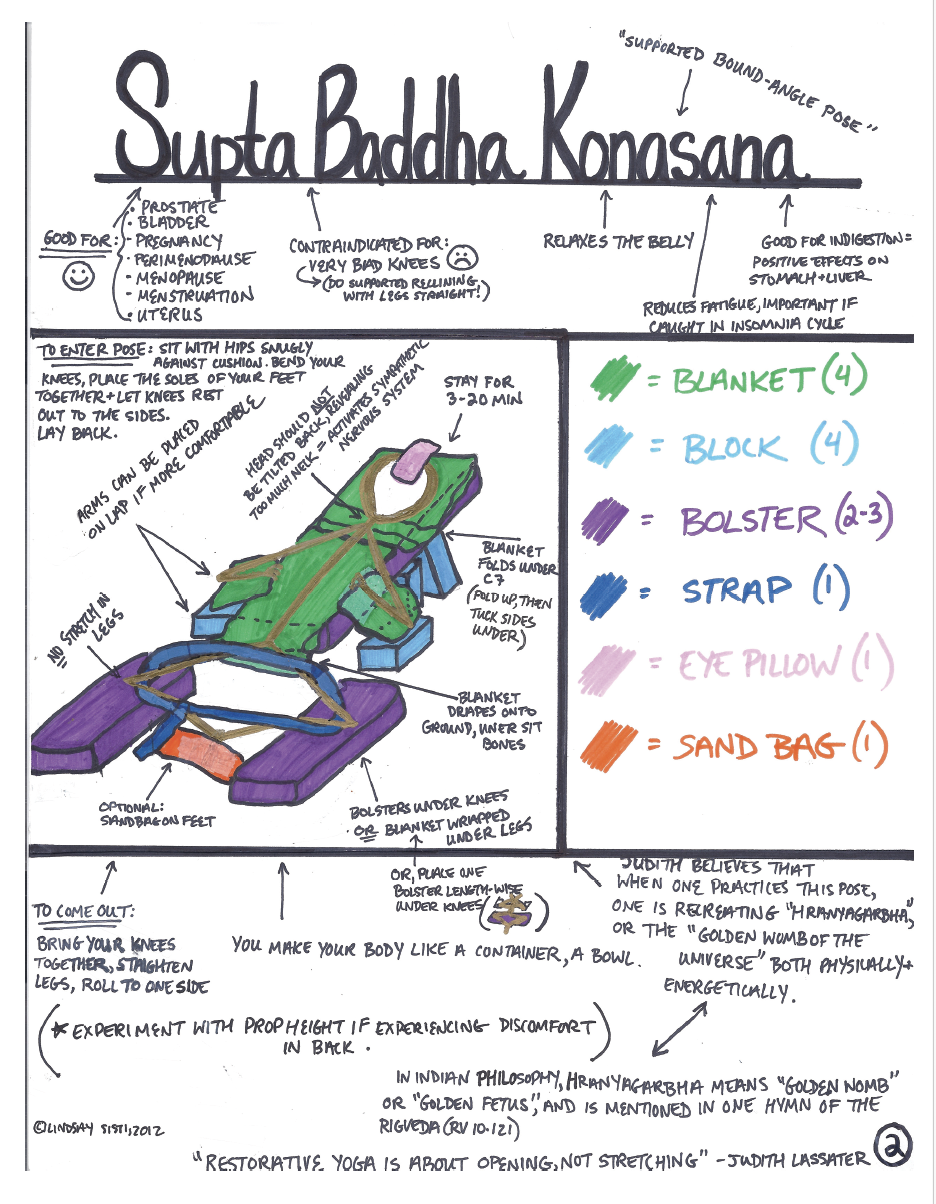 "SUPPORTED BOUND-ANGLE POSE"
Supta Baddha Konasana
GOOD FOR:
• PROSTATE
• BLADDER
- PREGNANCY
• PERIMENOPAUSE
- MENOPAUSE
- MENSTRUATION
• UTERUS
CONTRAINDICATED FOR:
VERY BAD KNEES
(DO SUPPORTED RECLINING,
WITH LEGS STRAIGHT!)
RELAXES THE BELLY
REDUCES FATIGUE, IMPORTANT IF
CAUGHT IN INSOMNIA CYCLE
GOOD FOR INDIGESTION =
POSITIVE EFFECTS ON
STOMACH + LIVER
TO ENTER POSE: SIT WITH HIPS SNUGLY
AGAINST CUSHION. BEND YOUR
KNEES, PLACE THE SOLES OF YOUR FEET
TOGETHER + LET KNEES REST
OUT TO THE SIDES.
LAY BACK.
ARMS CAN BE PLACED
ON LAP IF MORE COMFORTABLE
HEAD SHOULD NOT
BE TILTED BACK, REVEALING
TOO MUCH NECK = ACTIVATES SYMPATHETIC
NERVOUS SYSTEM
STAY FOR
3-20 MIN
BLANKET
FOLDS UNDER
C7
(FOLD UP, THEN
TUCK SIDES
UNDER)
NO STRETCH IN
LEGS
BLANKET
DRAPES ONTO
GROUND, UNER SIT
BONES
OPTIONAL:
SANDBAG ON FEET
BOLSTERS UNDER KNEES
OR BLANKET WRAPPED
UNDER LEGS
OR, PLACE ONE
BOLSTER LENGTH-WISE
UNDER KNEES
= BLANKET (4)
= BLOCK (4)
= BOLSTER (2-3)
= STRAP (1)
= EYE PILLOW (1)
= SAND BAG (1)
TO COME OUT:
BRING YOUR KNEES
TOGETHER, STAIGHTEN
LEGS, ROLL TO ONE SIDE
YOU MAKE YOUR BODY LIKE A CONTAINER, A BOWL.
JUDITH BELIEVES THAT
WHEN ONE PRACTICES THIS POSE,
ONE IS RECREATING "HRANYAGARBHA,"
OR THE "GOLDEN WOMB OF THE
UNIVERSE" BOTH PHYSICALLY +
ENERGETICALLY.
(* EXPERIMENT WITH PROP HEIGHT IF EXPERIENCING DISCOMFORT
IN BACK.)
IN INDIAN PHILOSOPHY, HRANYAGARBHA MEANS "GOLDEN NOMB"
OR "GOLDEN FETUS", AND IS MENTIONED IN ONE HYMN OF THE
RIGVEDA (RV 10.121)
©LINDSAY SISTI, 2012
"RESTORATIVE YOGA IS ABOUT OPENING, NOT STRETCHING" -JUDITH LASSATER
2